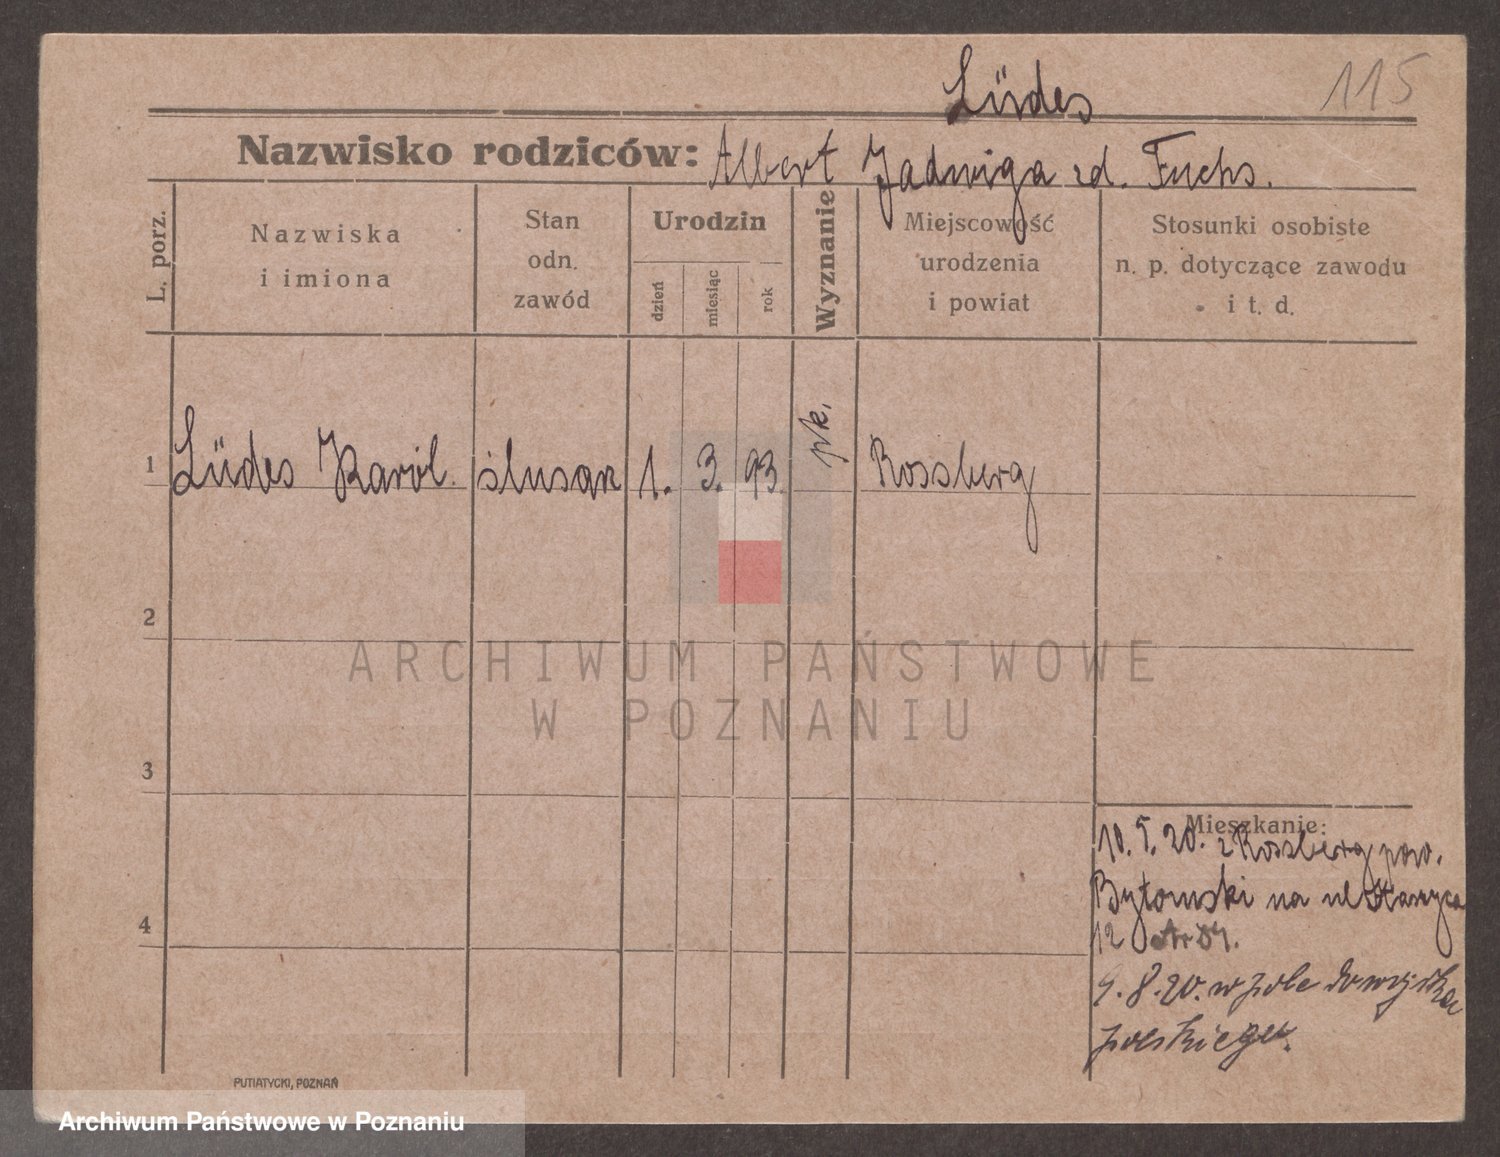 Lüdes
115
Nazwisko rodziców: Albert Jadwiga zd. Fuchs.
L. porz.
Nazwiska
i imiona
Stan
odn.
zawód
Urodzin
dzień
miesiąc
rok
Wyznanie
Miejscowość
urodzenia
i powiat
Stosunki osobiste
n. p. dotyczące zawodu
i t. d.
1 Lüdes Karól ślusarz 1. 3. 93. rk. Rossberg
2
3
4
ARCHIWUM PAŃSTWOWE
W POZNANIU
Mieszkanie:
10. 5. 20. z Rossberg pow.
Bytomski na ul
12
9. 8. 20. w pole do wojska
polskiego.
PUTIATYCKI, POZNAŃ
Archiwum Państwowe w Poznaniu